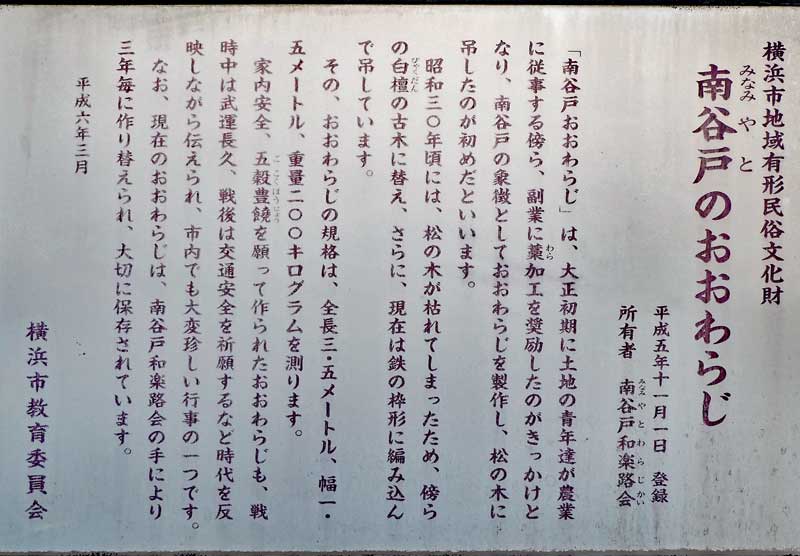 横浜市地域有形民俗文化財
南谷戸のおおわらじ
みなみやと
平成五年十一月一日 登録
所有者 南谷戸和楽路会
みなみやとわらじかい
「南谷戸おおわらじ」は、大正初期に土地の青年達が農業
に従事する傍ら、副業に藁加工を奨励したのがきっかけと
わら
なり、南谷戸の象徴としておおわらじを製作し、松の木に
吊したのが初めだといいます。
昭和三〇年頃には、松の木が枯れてしまったため、傍ら
の白檀の古木に替え、さらに、現在は鉄の枠形に編み込ん
びゃくだん
で吊しています。
その、おおわらじの規格は、全長三・五メートル、幅一・
五メートル、重量二〇〇キログラムを測ります。
家内安全、五穀豊饒を願って作られたおおわらじも、戦
ごこくほうじょう
時中は武運長久、戦後は交通安全を祈願するなど時代を反
映しながら伝えられ、市内でも大変珍しい行事の一つです。
なお、現在のおおわらじは、南谷戸和楽路会の手により
三年毎に作り替えられ、大切に保存されています。
平成六年三月
横浜市教育委員会